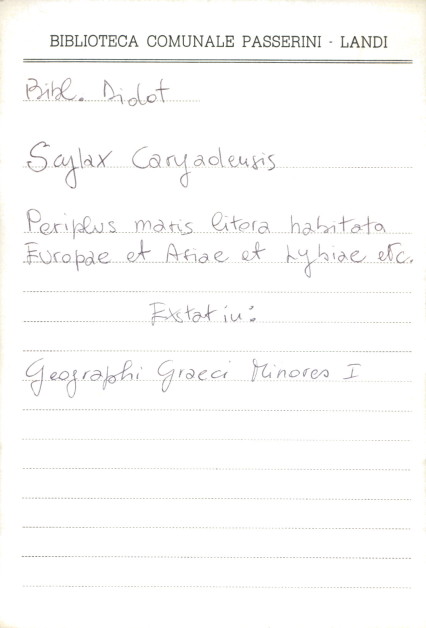 BIBLIOTECA COMUNALE PASSERINI - LANDI
Bibl. Didot
Scylax Caryadensis
Periplus maris litora habitata
Europae et Asiae et Lybiae etc.
Exstat in:
Geographi Graeci Minores I